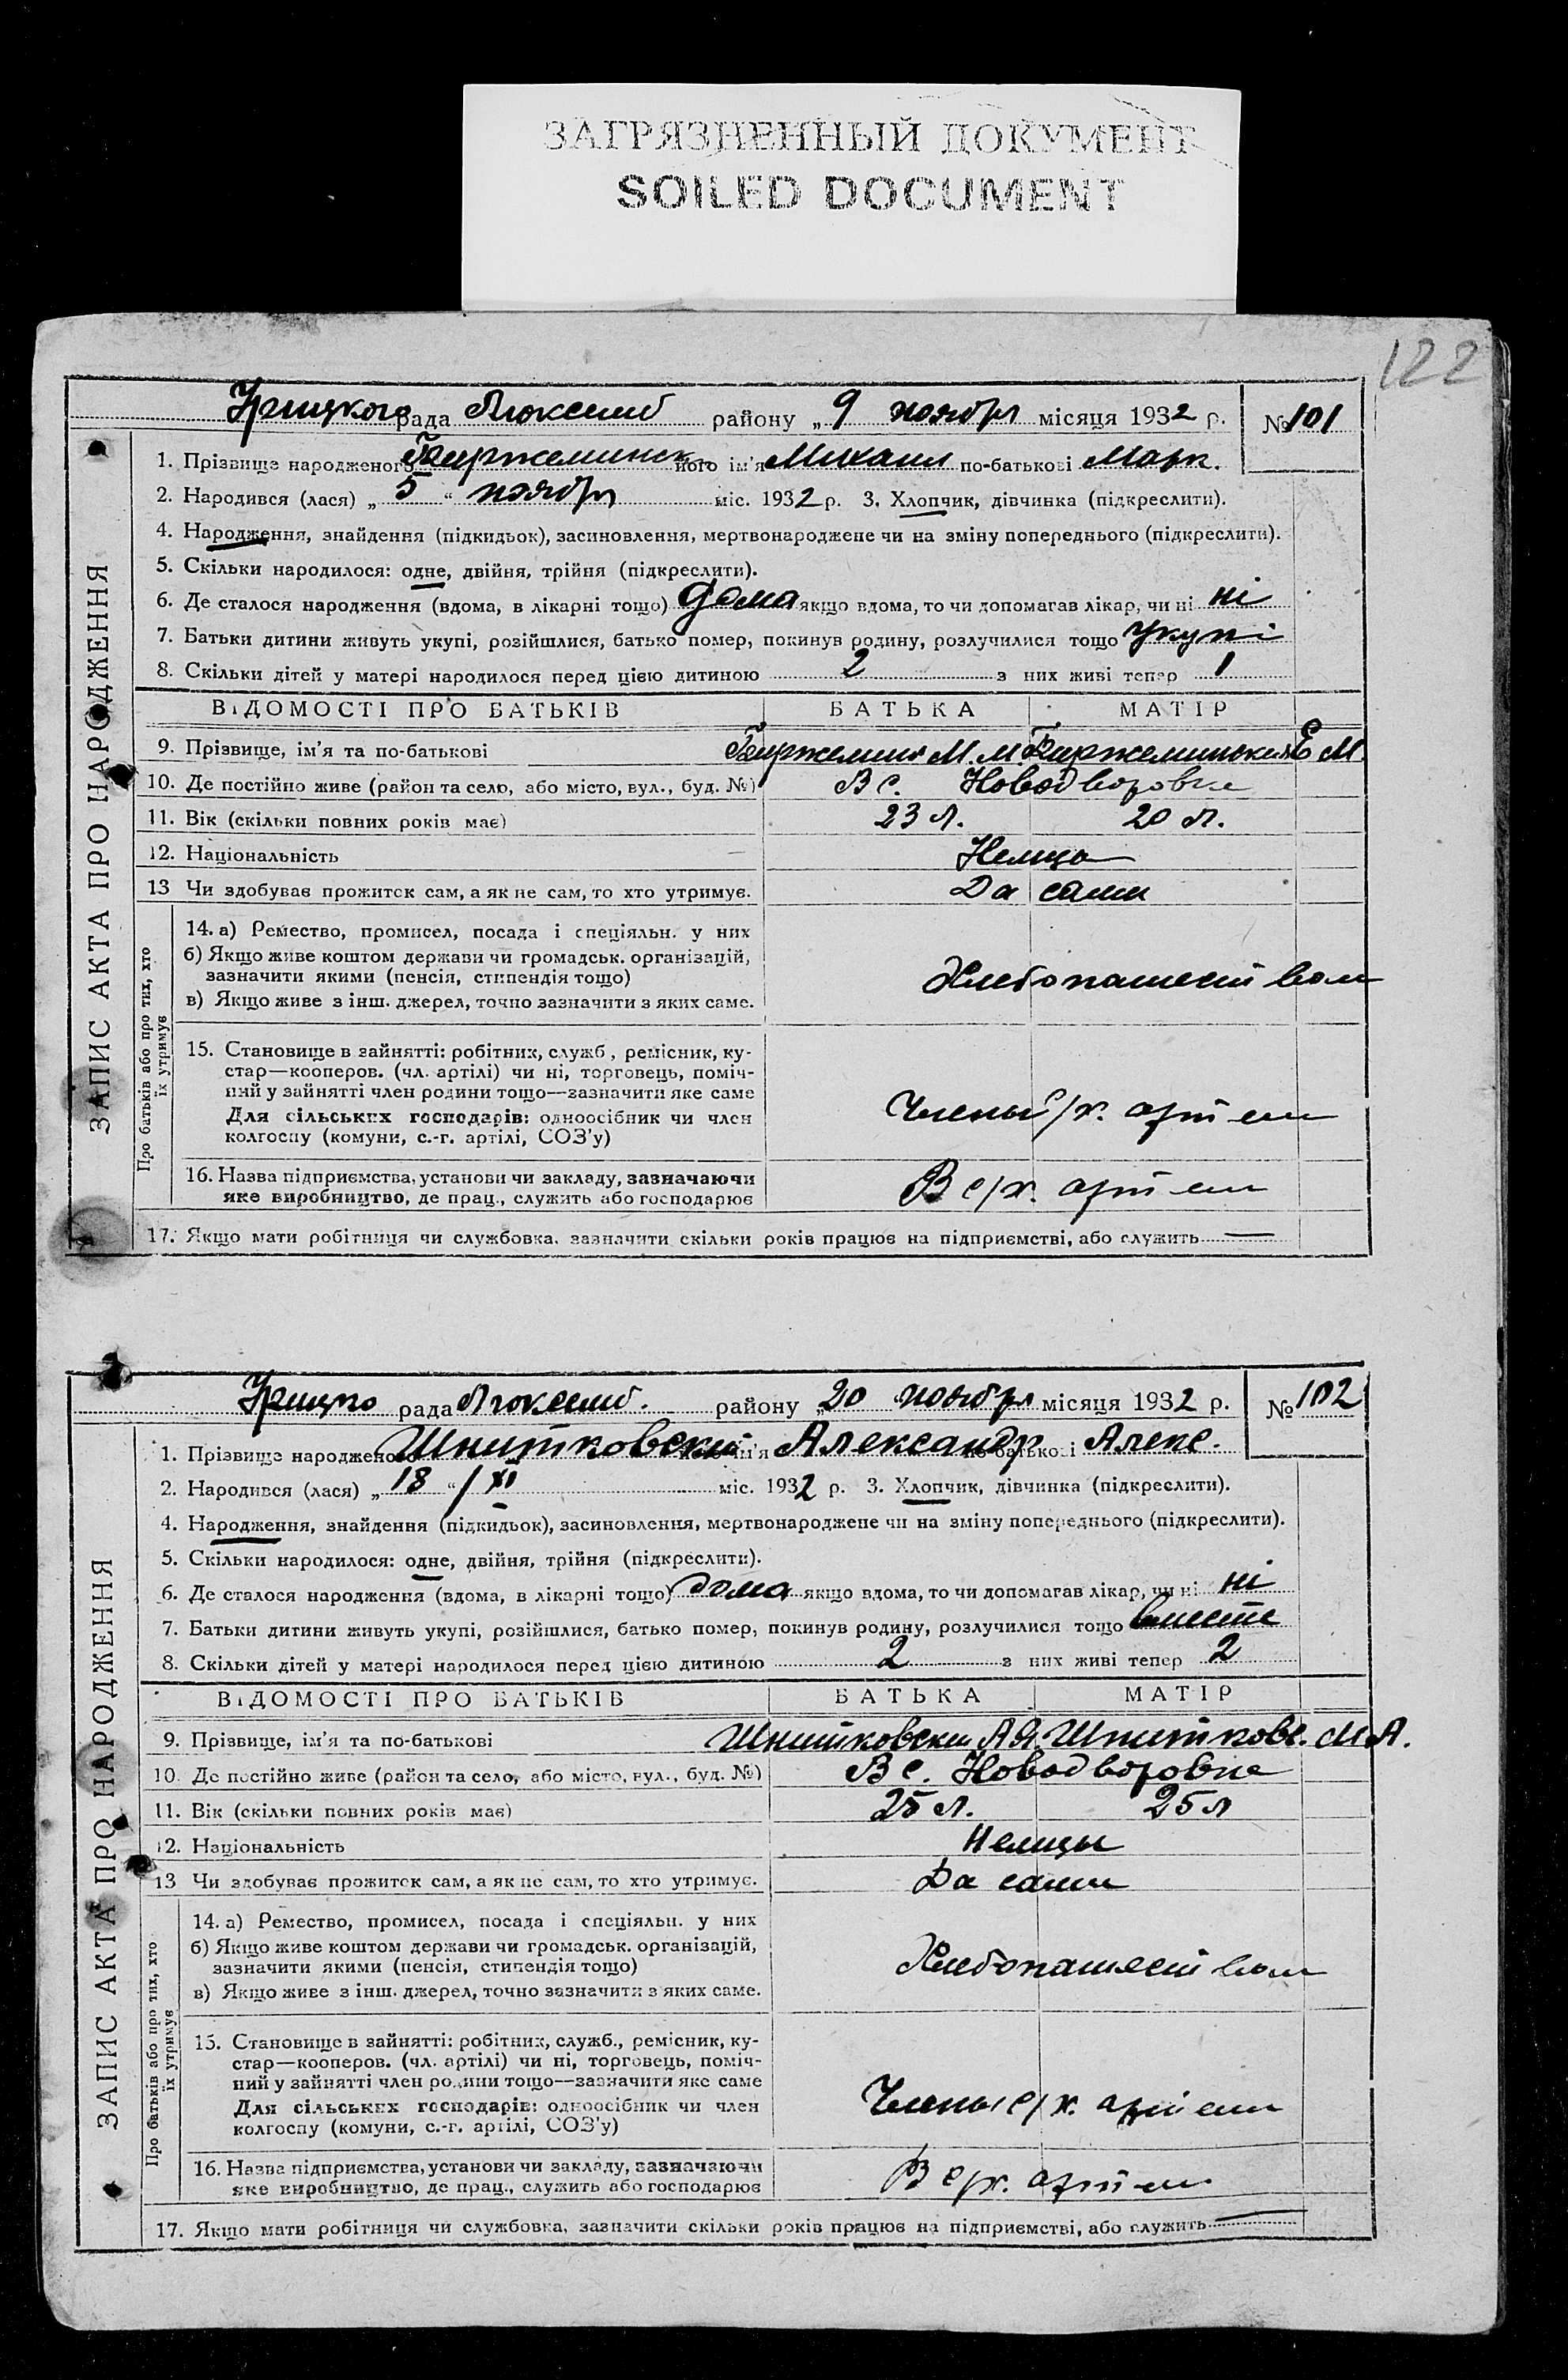 ЗАГРЯЗНЕННЫЙ ДОКУМЕНТ
SOILED DOCUMENT
122
рада району „ 9 ноября місяця 1932 р. № 101
ЗАПИС АКТА ПРО НАРОДЖЕННЯ
1. Прізвище народженого його ім'я Михаил по-батькові Марк.
2. Народився (лася) „ 5 “ ноября міс. 1932 р. 3. Хлопчик, дівчинка (підкреслити).
4. Народження, знайдення (підкидьок), засиновлення, мертвонароджене чи на зміну попереднього (підкреслити).
5. Скільки народилося: одне, двійня, трійня (підкреслити).
6. Де сталося народження (вдома, в лікарні тощо) дома якщо вдома, то чи допомагав лікар, чи ні ні
7. Батьки дитини живуть укупі, розійшлися, батько помер, покинув родину, розлучилися тощо укупі
8. Скільки дітей у матері народилося перед цією дитиною 2 з них живі тепер 1
ВІДОМОСТІ ПРО БАТЬКІВ БАТЬКА МАТІР
9. Прізвище, ім'я та по-батькові М. М. Е М.
10. Де постійно живе (район та село, або місто, вул., буд. №) В с. Новодворовке
11. Вік (скільки повних років має) 23 л. 20 л.
12. Національність Немцы
13 Чи здобуває прожиток сам, а як не сам, то хто утримує. Да сами
Про батьків або про тих, хто їх утримує
14. а) Ремество, промисел, посада і спеціяльн. у них
б) Якщо живе коштом держави чи громадськ. організацій,
зазначити якими (пенсія, стипендія тощо) Хлебопашеством
в) Якщо живе з інш. джерел, точно зазначити з яких саме.
15. Становище в зайнятті: робітник, служб., ремісник, ку-
стар—кооперов. (чл. артілі) чи ні, торговець, поміч-
ний у зайнятті член родини тощо—зазначити яке саме
Для сільських господарів: одноосібник чи член Члены с/х. артели
колгоспу (комуни, с.-г. артілі, СОЗ'у)
16. Назва підприємства, установи чи закладу, зазначаючи В с/х. артели
яке виробництво, де прац., служить або господарює
17. Якщо мати робітниця чи службовка, зазначити скільки років працює на підприємстві, або служить —
рада району „ 20 ноября місяця 1932 р. № 102
ЗАПИС АКТА ПРО НАРОДЖЕННЯ
1. Прізвище народженого Шнитковский його ім'я Александр по-батькові Алекс.
2. Народився (лася) „ 18 “ / XI міс. 1932 р. 3. Хлопчик, дівчинка (підкреслити).
4. Народження, знайдення (підкидьок), засиновлення, мертвонароджене чи на зміну попереднього (підкреслити).
5. Скільки народилося: одне, двійня, трійня (підкреслити).
6. Де сталося народження (вдома, в лікарні тощо) дома якщо вдома, то чи допомагав лікар, чи ні ні
7. Батьки дитини живуть укупі, розійшлися, батько помер, покинув родину, розлучилися тощо вместе
8. Скільки дітей у матері народилося перед цією дитиною 2 з них живі тепер 2
ВІДОМОСТІ ПРО БАТЬКІВ БАТЬКА МАТІР
9. Прізвище, ім'я та по-батькові Шнитковски А Я. Шнитковс. М А.
10. Де постійно живе (район та село, або місто, вул., буд. №) В с. Новодворовке
11. Вік (скільки повних років має) 25 л. 25 л
12. Національність Немцы
13 Чи здобуває прожиток сам, а як не сам, то хто утримує. Да сами
Про батьків або про тих, хто їх утримує
14. а) Ремество, промисел, посада і спеціяльн. у них
б) Якщо живе коштом держави чи громадськ. організацій,
зазначити якими (пенсія, стипендія тощо) Хлебопашеством
в) Якщо живе з інш. джерел, точно зазначити з яких саме.
15. Становище в зайнятті: робітник, служб., ремісник, ку-
стар—кооперов. (чл. артілі) чи ні, торговець, поміч-
ний у зайнятті член родини тощо—зазначити яке саме
Для сільських господарів: одноосібник чи член Члены с/х. артели
колгоспу (комуни, с.-г. артілі, СОЗ'у)
16. Назва підприємства, установи чи закладу, зазначаючи В с/х. артели
яке виробництво, де прац., служить або господарює
17. Якщо мати робітниця чи службовка, зазначити скільки років працює на підприємстві, або служить —